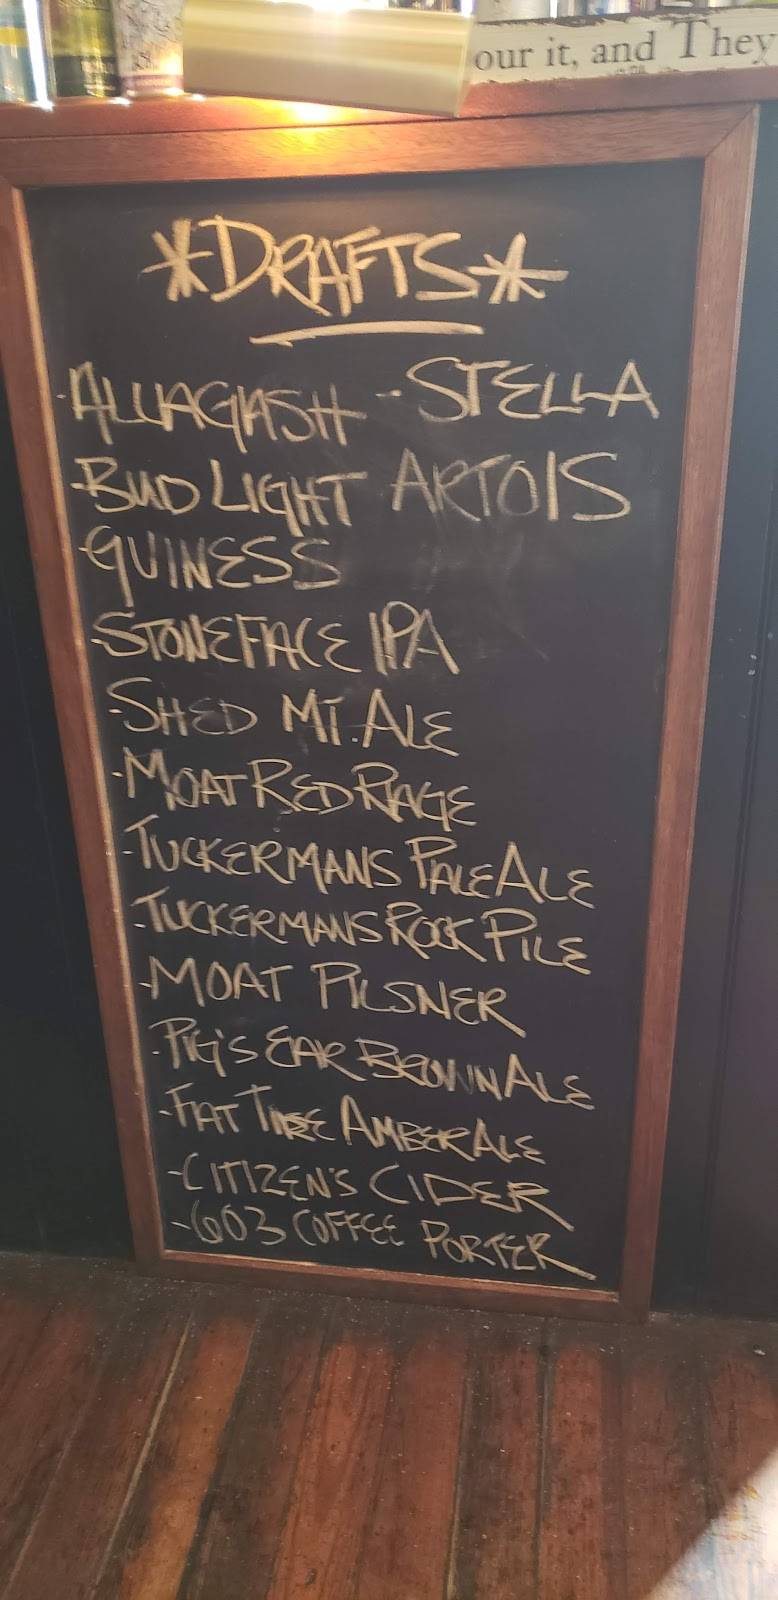 our it, and They
*DRAFTS*
-ALLAGASH
-STELLA
ARTOIS
-BUD LIGHT
-GUINESS
-STONEFACE IPA
-SHED MT. ALE
-MOAT RED RAGE
-TUCKERMANS PALE ALE
-TUCKERMANS ROCK PILE
-MOAT PILSNER
-PIG'S EAR BROWN ALE
-FAT TIRE AMBER ALE
-CITIZEN'S CIDER
-603 COFFEE PORTER